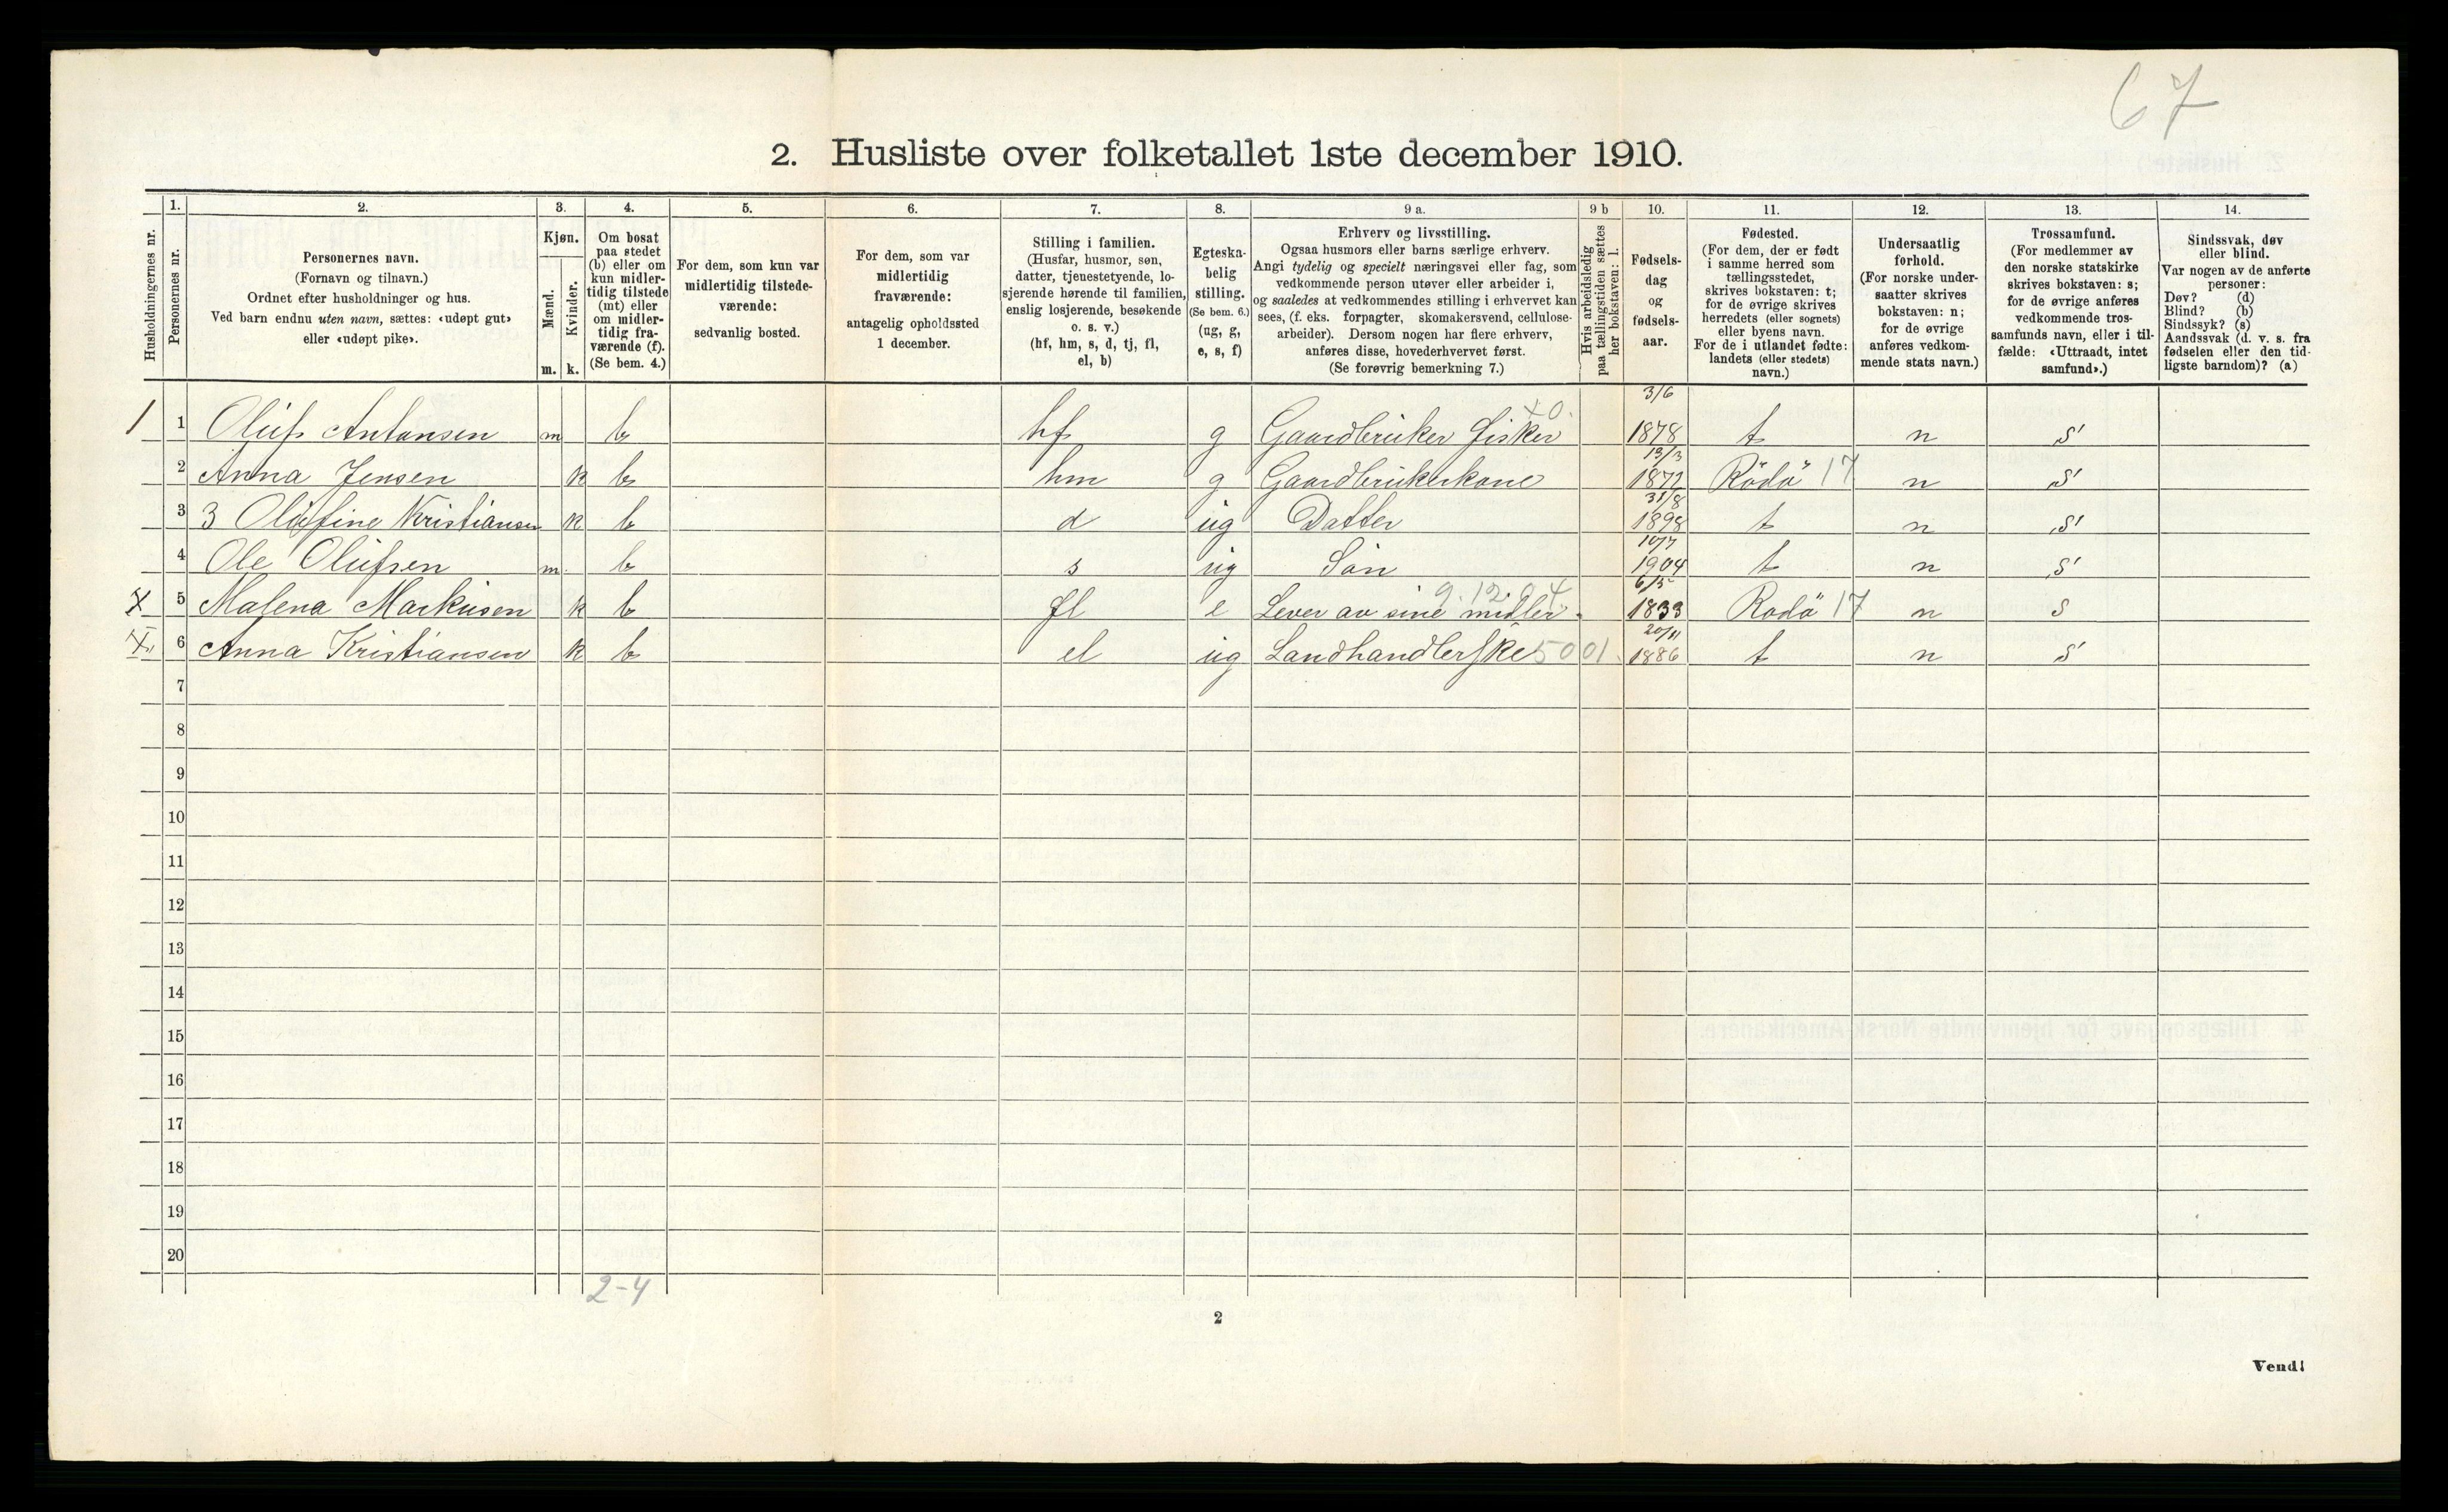 67
2. Husliste over folketallet 1ste december 1910.
Husholdningernes nr.
1.
Personernes nr.
2.
Personernes navn.
(Fornavn og tilnavn.)
Ordnet efter husholdninger og hus.
Ved barn endnu uten navn, sættes: «udøpt gut»
eller «udøpt pike».
3.
Kjøn.
Mænd.
Kvinder.
m. k.
4.
Om bosat
paa stedet
(b) eller om
kun midler-
tidig tilstede
(mt) eller
om midler-
tidig fra-
værende (f).
(Se bem. 4.)
5.
For dem, som kun var
midlertidig tilstede-
værende:
sedvanlig bosted.
6.
For dem, som var
midlertidig
fraværende:
antagelig opholdssted
1 december.
7.
Stilling i familien.
(Husfar, husmor, søn,
datter, tjenestetyende, lo-
sjerende hørende til familien,
enslig losjerende, besøkende
o. s. v.)
(hf, hm, s, d, tj, fl,
el, b)
8.
Egteska-
belig
stilling.
(Se bem. 6.)
(ug, g,
e, s, f)
9 a.
Erhverv og livsstilling.
Ogsaa husmors eller barns særlige erhverv.
Angi tydelig og specielt næringsvei eller fag, som
vedkommende person utøver eller arbeider i,
og saaledes at vedkommendes stilling i erhvervet kan
sees, (f. eks. forpagter, skomakersvend, cellulose-
arbeider). Dersom nogen har flere erhverv,
anføres disse, hovederhvervet først.
(Se forøvrig bemerkning 7.)
9 b
Hvis arbeidsledig
paa tællingstiden sættes
her bokstaven: l.
10.
Fødsels-
dag
og
fødsels-
aar.
11.
Fødested.
(For dem, der er født
i samme herred som
tællingsstedet,
skrives bokstaven: t;
for de øvrige skrives
herredets (eller sognets)
eller byens navn.
For de i utlandet fødte:
landets (eller stedets)
navn.)
12.
Undersaatlig
forhold.
(For norske under-
saatter skrives
bokstaven: n;
for de øvrige
anføres vedkom-
mende stats navn.)
13.
Trossamfund.
(For medlemmer av
den norske statskirke
skrives bokstaven: s;
for de øvrige anføres
vedkommende tros-
samfunds navn, eller i til-
fælde: «Uttraadt, intet
samfund».)
14.
Sindssvak, døv
eller blind.
Var nogen av de anførte
personer:
Døv? (d)
Blind? (b)
Sindssyk? (s)
Aandssvak (d. v. s. fra
fødselen eller den tid-
ligste barndom)? (a)
1 1 Oluf Antonsen m b hf g Gaardbruker fisker x0. 3/6 1878 t n s
2 Anna Jensen k b hm g Gaardbrukerkone 13/3 1872 Rödö 17 n s
3 3 Olufine Kristiansen k b d ug Datter 31/8 1898 t n s
4 Ole Olufsen m. b s ug Sön 10/7 1904 t n s
x 5 Malena Markusen k b fl e Lever av sine midler. 9.12.04 6/5 1833 Rodö 17 n s
x 6 Anna Kristiansen k b el ug Landhandlerske 5001. 20/11 1886 t n s
7
8
9
10
11
12
13
14
15
16
17
18
19
20
2-4
2
Vend!